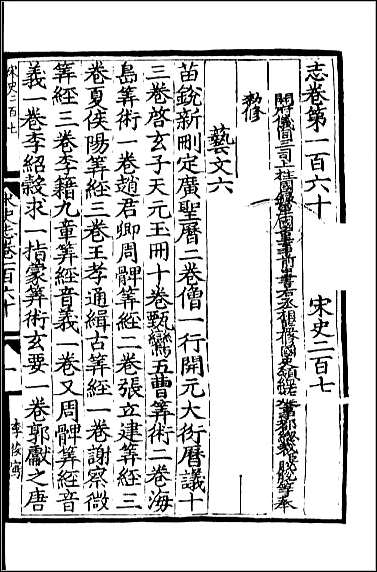 志卷第一百六十 宋史二百七
開府儀同三司上柱國錄軍國重事前中書右丞相監修國史領經筵事都總裁臣脫脫等奉
勑修
藝文六
苗銳新刪定廣聖曆二卷僧一行開元大衍曆議十
三卷啓玄子天元玉冊十卷甄鸞五曹筭術二卷海
島筭術一卷趙君卿周髀筭經二卷張立建筭經三
卷夏侯陽筭經三卷王孝通緝古筭經一卷謝察微
筭經三卷李籍九章筭經音義一卷又周髀筭經音
義一卷李紹穀求一指蒙筭術玄要一卷郭獻之唐
宋史二百七
宋史志卷一百六十
一